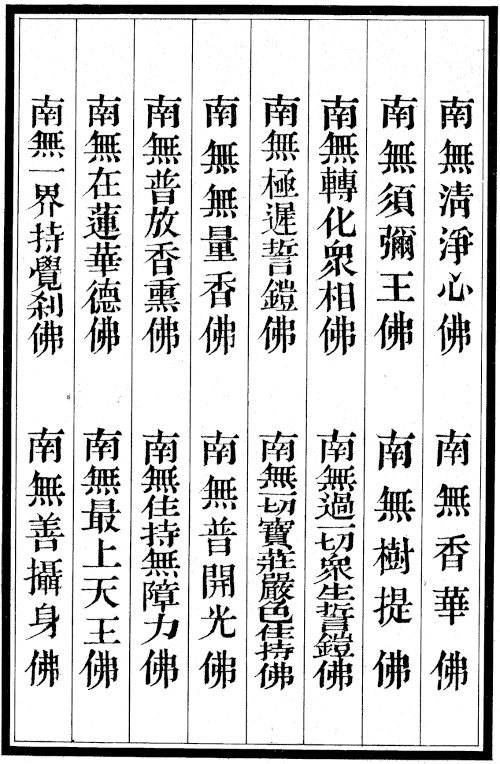 南無清淨心佛 南無香華佛
南無須彌王佛 南無樹提佛
南無轉化衆相佛 南無過一切衆生誓鎧佛
南無極遲誓鎧佛 南無一切寶莊嚴色住持佛
南無無量香佛 南無普開光佛
南無普放香熏佛 南無住持無障力佛
南無在蓮華德佛 南無最上天王佛
南無一界持覺刹佛 南無善攝身佛